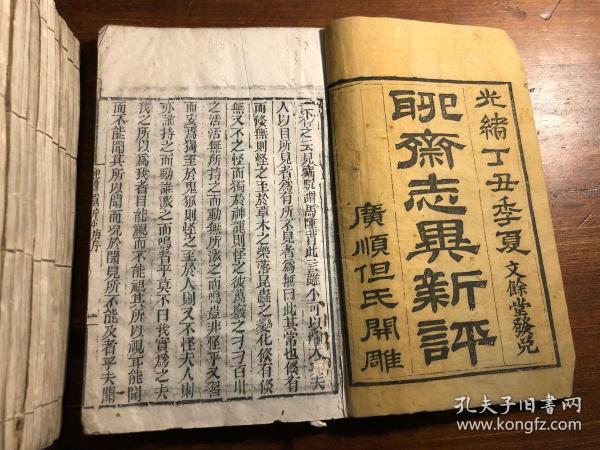 光緒丁丑季夏
文餘堂發兌
聊齋志異新評
廣順但氏開雕
人以目所見者為有所不見者為無曰此其常也倏有
而倏無則怪之至於草木之榮落昆蟲之變化倏有倏
無又不之怪而獨於神龍則怪之彼萬竅之刁刁百川
之活活無所持之而動無所激之而鳴豈非怪乎又習
而安焉獨至於鬼狐則怪之至於人則又不怪夫人則
亦誰持之而動誰激之而鳴者乎莫不曰我實為之夫
我之所以為我者目能視而不能視其所以視耳能聞
而不能聞其所以聞而況於聞見所不能及者乎夫聞
孔夫子旧书网
www.kongfz.com